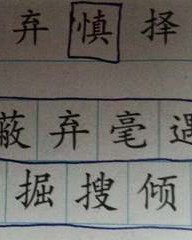 弃慎择
蔽弃毫遇
掘搜倾